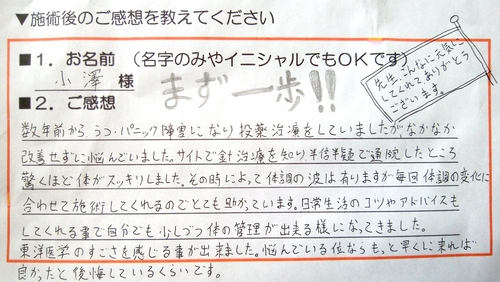 ▼施術後のご感想を教えてください
■1．お名前（名字のみやイニシャルでもOKです）
小澤 様
まず一歩!!
先生、こんなに元気に
してくれてありがとう
ございます。
■2．ご感想
数年前から、うつ・パニック障害になり投薬治療をしていましたがなかなか
改善せずに悩んでいました。サイトで針治療を知り半信半疑で通院したところ
驚くほど体がスッキリしました。その時によって体調の波は有りますが毎回体調の変化に
合わせて施術してくれるのでとても助かっています。日常生活のコツやアドバイスも
してくれる事で自分でも少しづつ体の管理が出来る様になってきました。
東洋医学のすごさを感じる事が出来ました。悩んでいる位ならもっと早くに来れば
良かったと後悔しているくらいです。